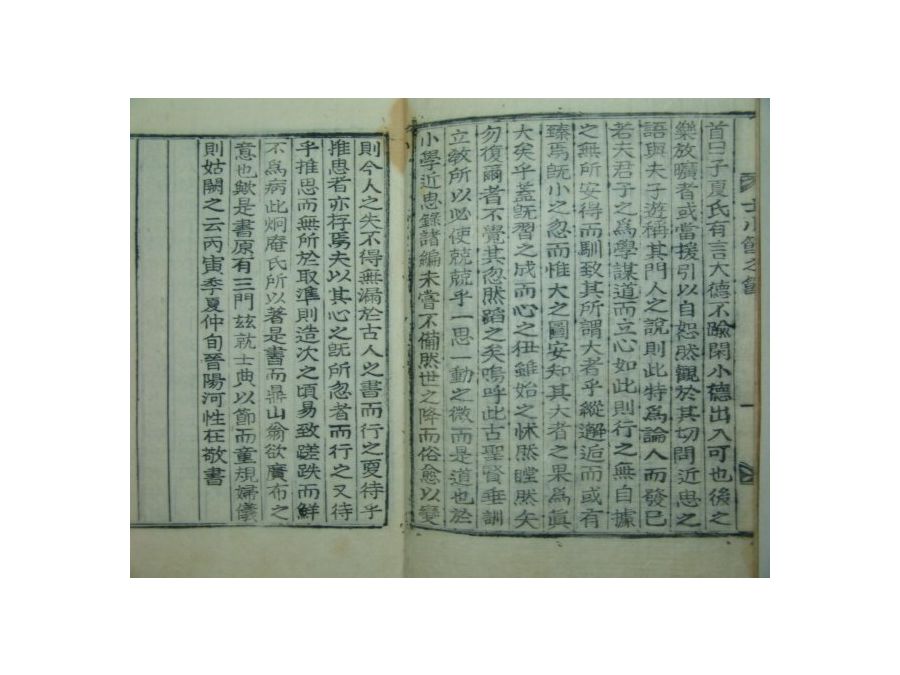 士小節之節
一
首曰子夏氏有言大德不踰閑小德出入可也後之
樂放曠者或當援引以自恕然觀於其切問近思之
語與夫子遊稱其門人之說則此特爲論人而發已
若夫君子之爲學謀道而立心如此則行之無自據
之無所安得而馴致其所謂大者乎縱邂逅而或有
臻焉旣小之忽而惟大之圖安知其大者之果爲眞
大矣乎蓋旣習之成而心之狃雖始之怵然瞠然矣
勿復爾者不覺其忽然蹈之矣嗚呼此古聖賢垂訓
立敎所以必使兢兢乎一思一動之微而是道也於
小學近思錄諸編未嘗不備然世之降而俗愈以變
則今人之失不得無漏於古人之書而行之夏待乎
推思者亦存焉夫以其心之旣所忽者而行之又待
乎推思而無所於取準則造次之頃易致蹉跌而鮮
不爲病此炯庵氏所以著是書而鼎山翁欲廣布之
意也歟是書原有三門玆就士典以節而童規婦儀
則姑闕之云丙寅季夏仲旬晉陽河性在敬書